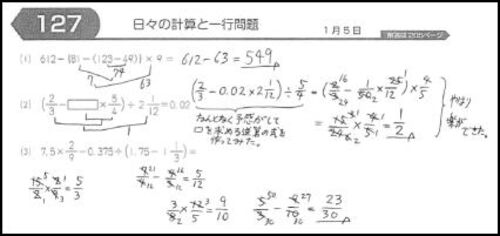 127 日々の計算と一行問題 1月5日
解答は205ページ
(1) 612-{81-(123-49)}×9= 612-63=549
74
7
63
(2) (2/3-□×3/4)÷2 1/12=0.02 (2/3-0.02×2 1/12)÷5/4=(2/3-1/50×25/12)×4/5
なんとなく予感がして
□を求める逆算の式を
作ってみた。
=15/24×4/5=1/2
やはり
楽が
できた。
(3) 7.5×2/9-0.375÷(1.75-1 1/3)=
15/2×2/9=5/3
21/12-16/12=5/12
3/8×12/5=9/10
5/3-9/10=23/30